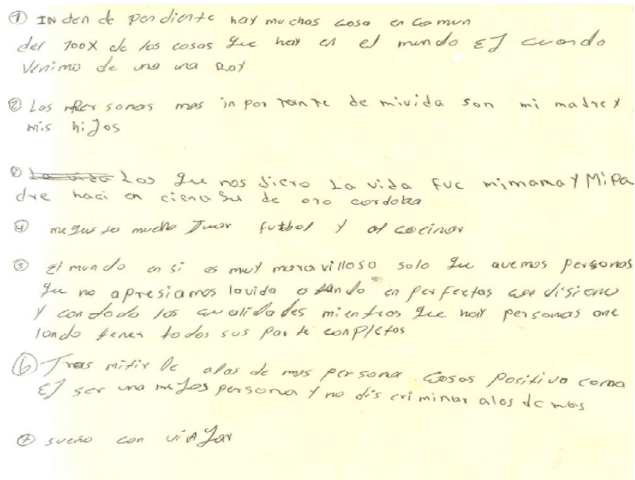 ① INdendependiente hay muchos cosa en comun
del 100X de los cosas que hay en el mundo EJ cuando
venimo de una una
② Los personas mas inportante de mivida son mi madre y
mis hiJos
③ Los que nos diero La vida fue mimama Y MiPa
dre naci en cienaGu de oro cordoba
④ megusta mucho Jugar futbol y al cocinar
⑤ El mundo en si es muy maravilloso solo que avemos personas
que no apresiamos lavida estando en perfectas condisione
y contodo los cualidades mientros que hay personas one
lando tener todos sus parte conpletos
⑥ Tras mitir le alos de mas persona cosos Positivo como
EJ ser una meJos persona y no discriminar alos demas
⑦ sueño con viaJar